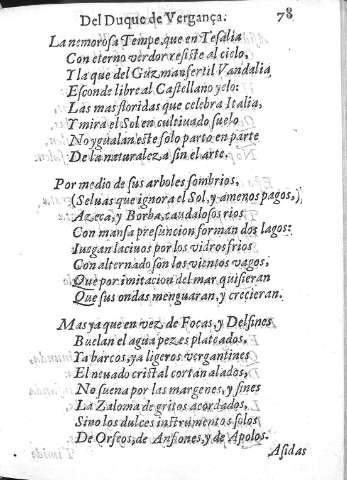 Del Duque de Vergança. 78
La nemorosa Tempe, que en Tesalia
Con eterno verdor resiste al cielo,
Y la que del Guz, mansertil Vandalia
Esconde libre al Castellano yelo:
Las mas floridas que celebra Italia,
Y mira el Sol en cultiuado suelo
No ygualan este solo parto en parte
De la naturaleza sin el arte.
Por medio de sus arboles sombrios,
(Seluas que ignora el Sol, y amenos pagos,)
Azeca, y Borba, caudalosos rios
Con mansa presuncion forman dos lagos:
Iuegan laciuos por los vidros frios
Con alternado son los vientos vagos,
Que por imitacion del mar quisieran
Que sus ondas menguaran, y crecieran.
Mas ya que en vez de Focas, y Delfines
Buelan el agua pezes plateados,
Ya barcos, ya ligeros vergantines
El neuado cristal cortan alados,
No suena por las margenes, y fines
La Zaloma de gritos acordados,
Sino los dulces instrumentos solos
De Orfeos, de Anfiones, y de Apolos.
Asidas